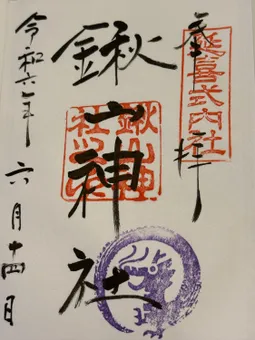 奉拝
延喜式内社
鍬山神社
鍬山神社
令和六年六月十四日